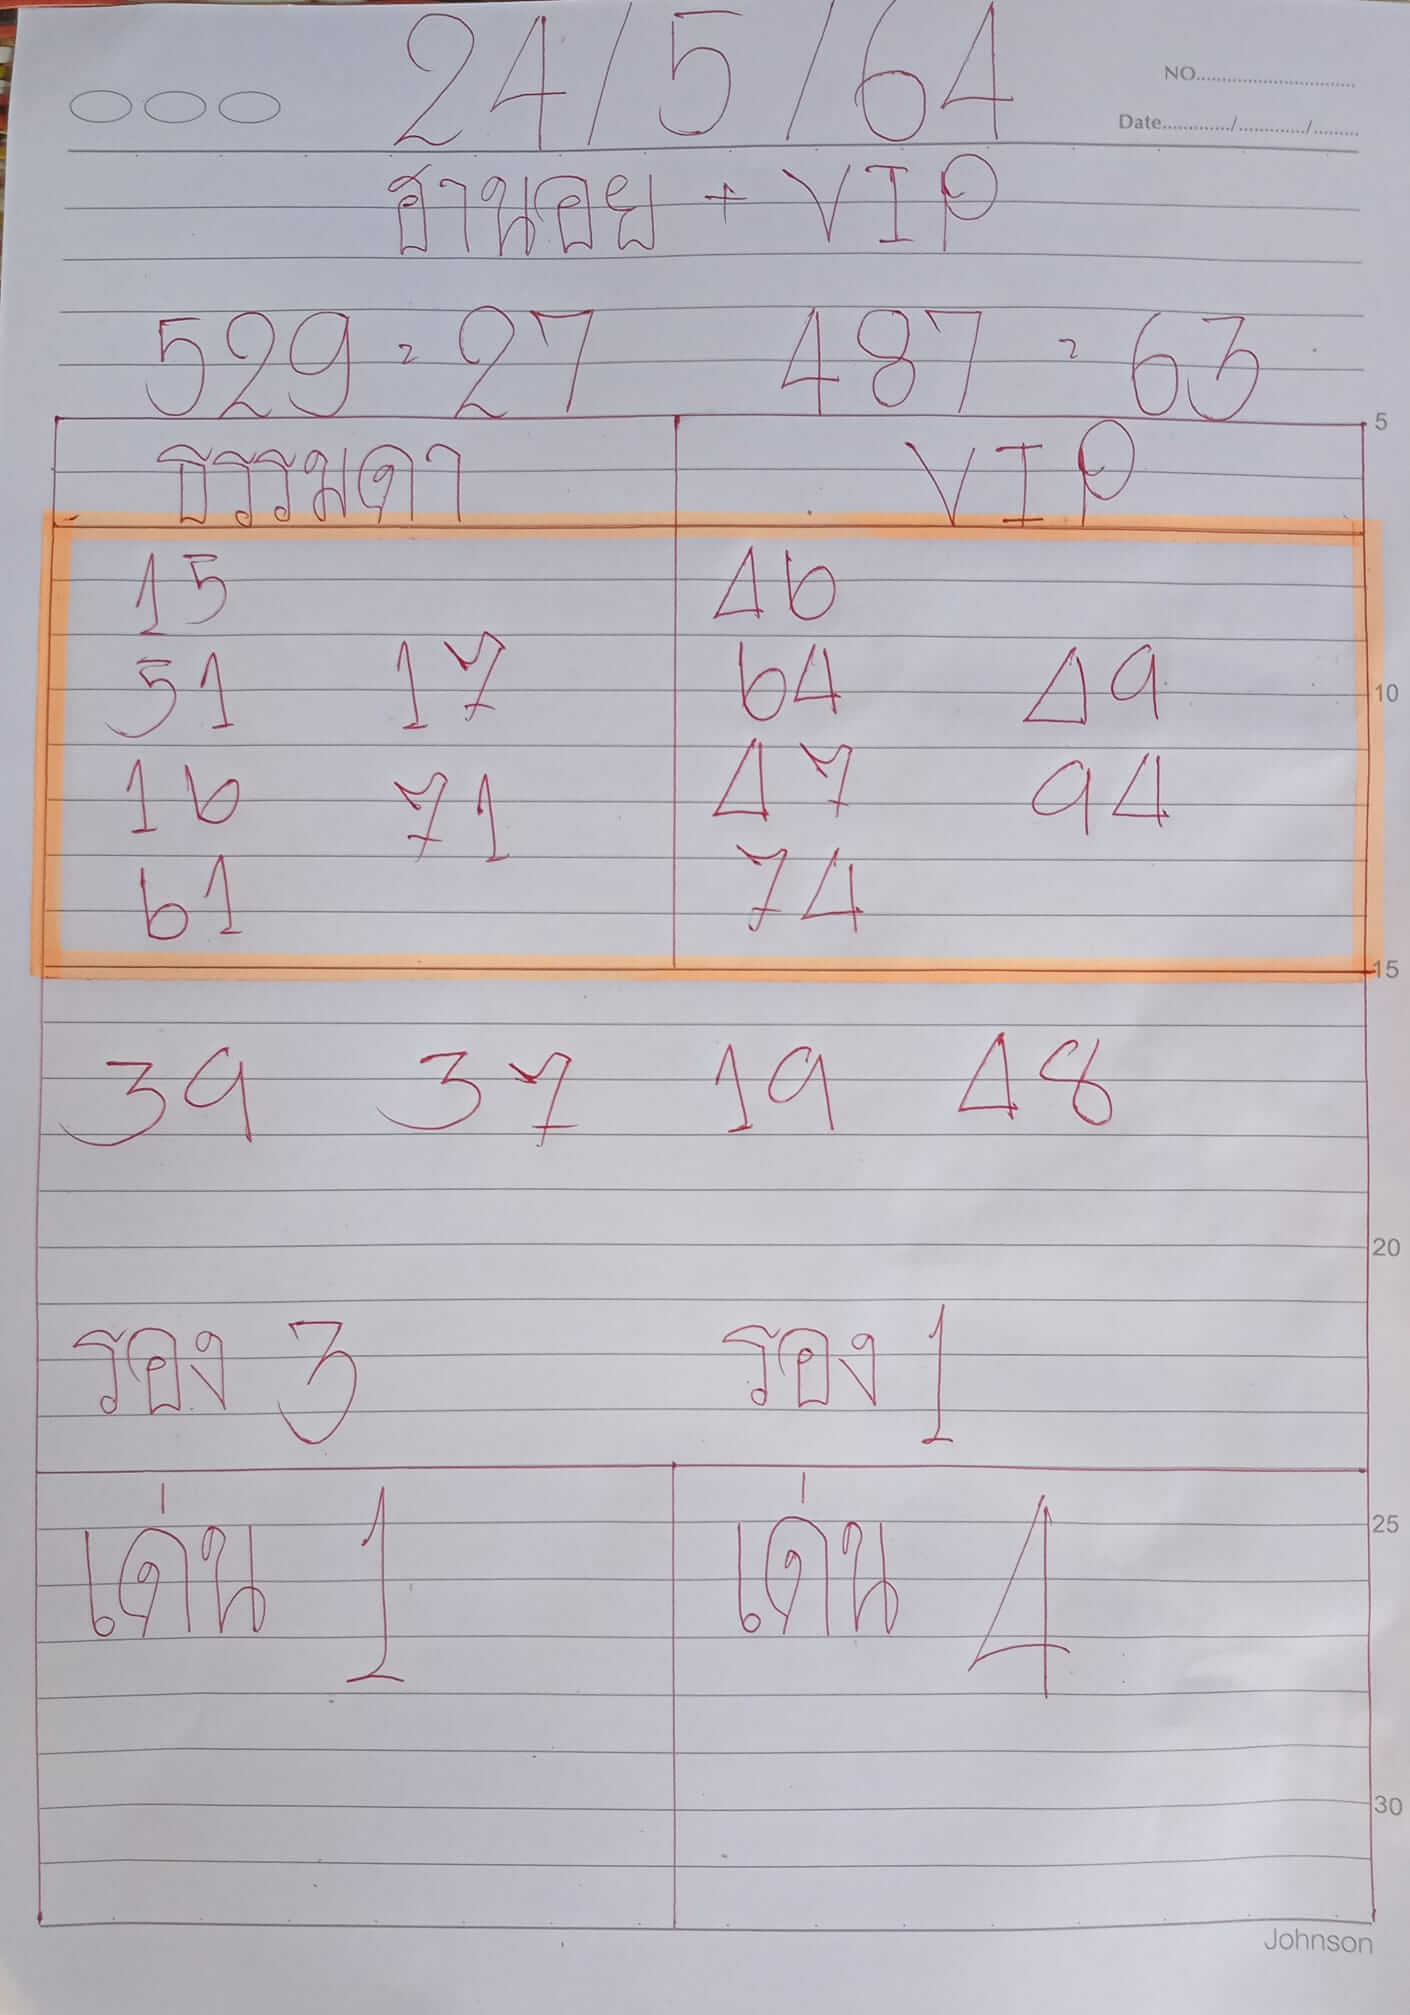 24/5/64
NO..............................
Date............/............/.........
ฮานอย + VIP
529 = 27 487 = 63
5
ธรรมดา VIP
15 46
51 17 64 49
10
16 71 47 94
61 74
15
39 37 19 48
20
รอง 3 รอง 1
เด่น 1 เด่น 4
25
30
Johnson